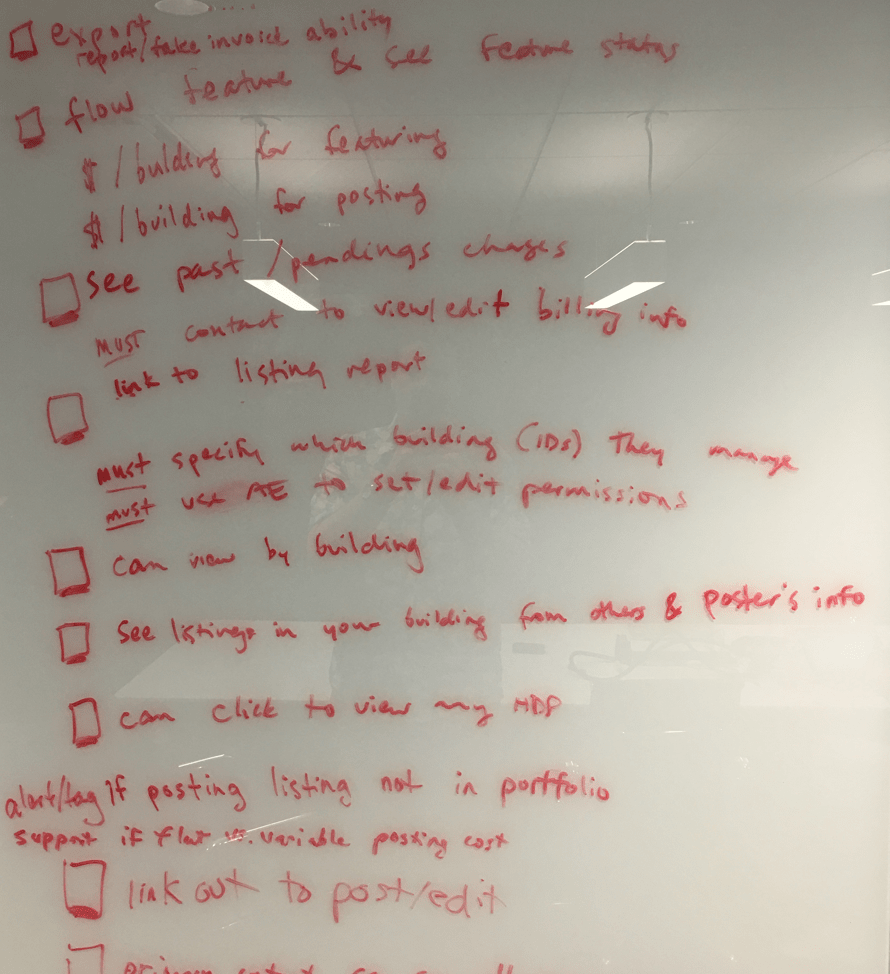 export
report/fake invoice ability
flow feature & see feature status
$/bulding for featuring
$/building for posting
see past/pendings charges
must contact to view/edit billing info
link to listing report
must specify which building (IDs) they manage
must use AE to set/edit permissions
can view by building
see listings in your building from others & poster's info
can click to view my HDP
alert/tag if posting listing not in portfolio
support if flat vs. variable posting cost
link out to post/edit